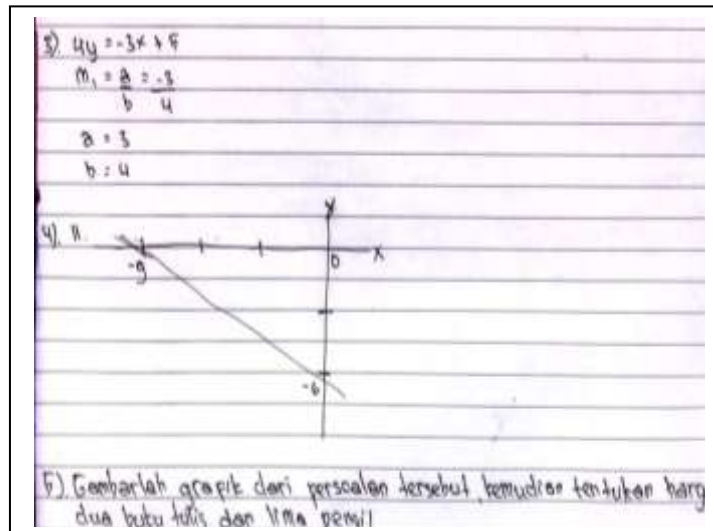 3). 4y = -3x + 5
m₁ = a/b = -3/4
a = 3
b = 4
4). 11.
y
-9
0
x
-6
5). Gambarlah grafik dari persoalan tersebut, kemudian tentukan harg
dua buku tulis dan lima pensil